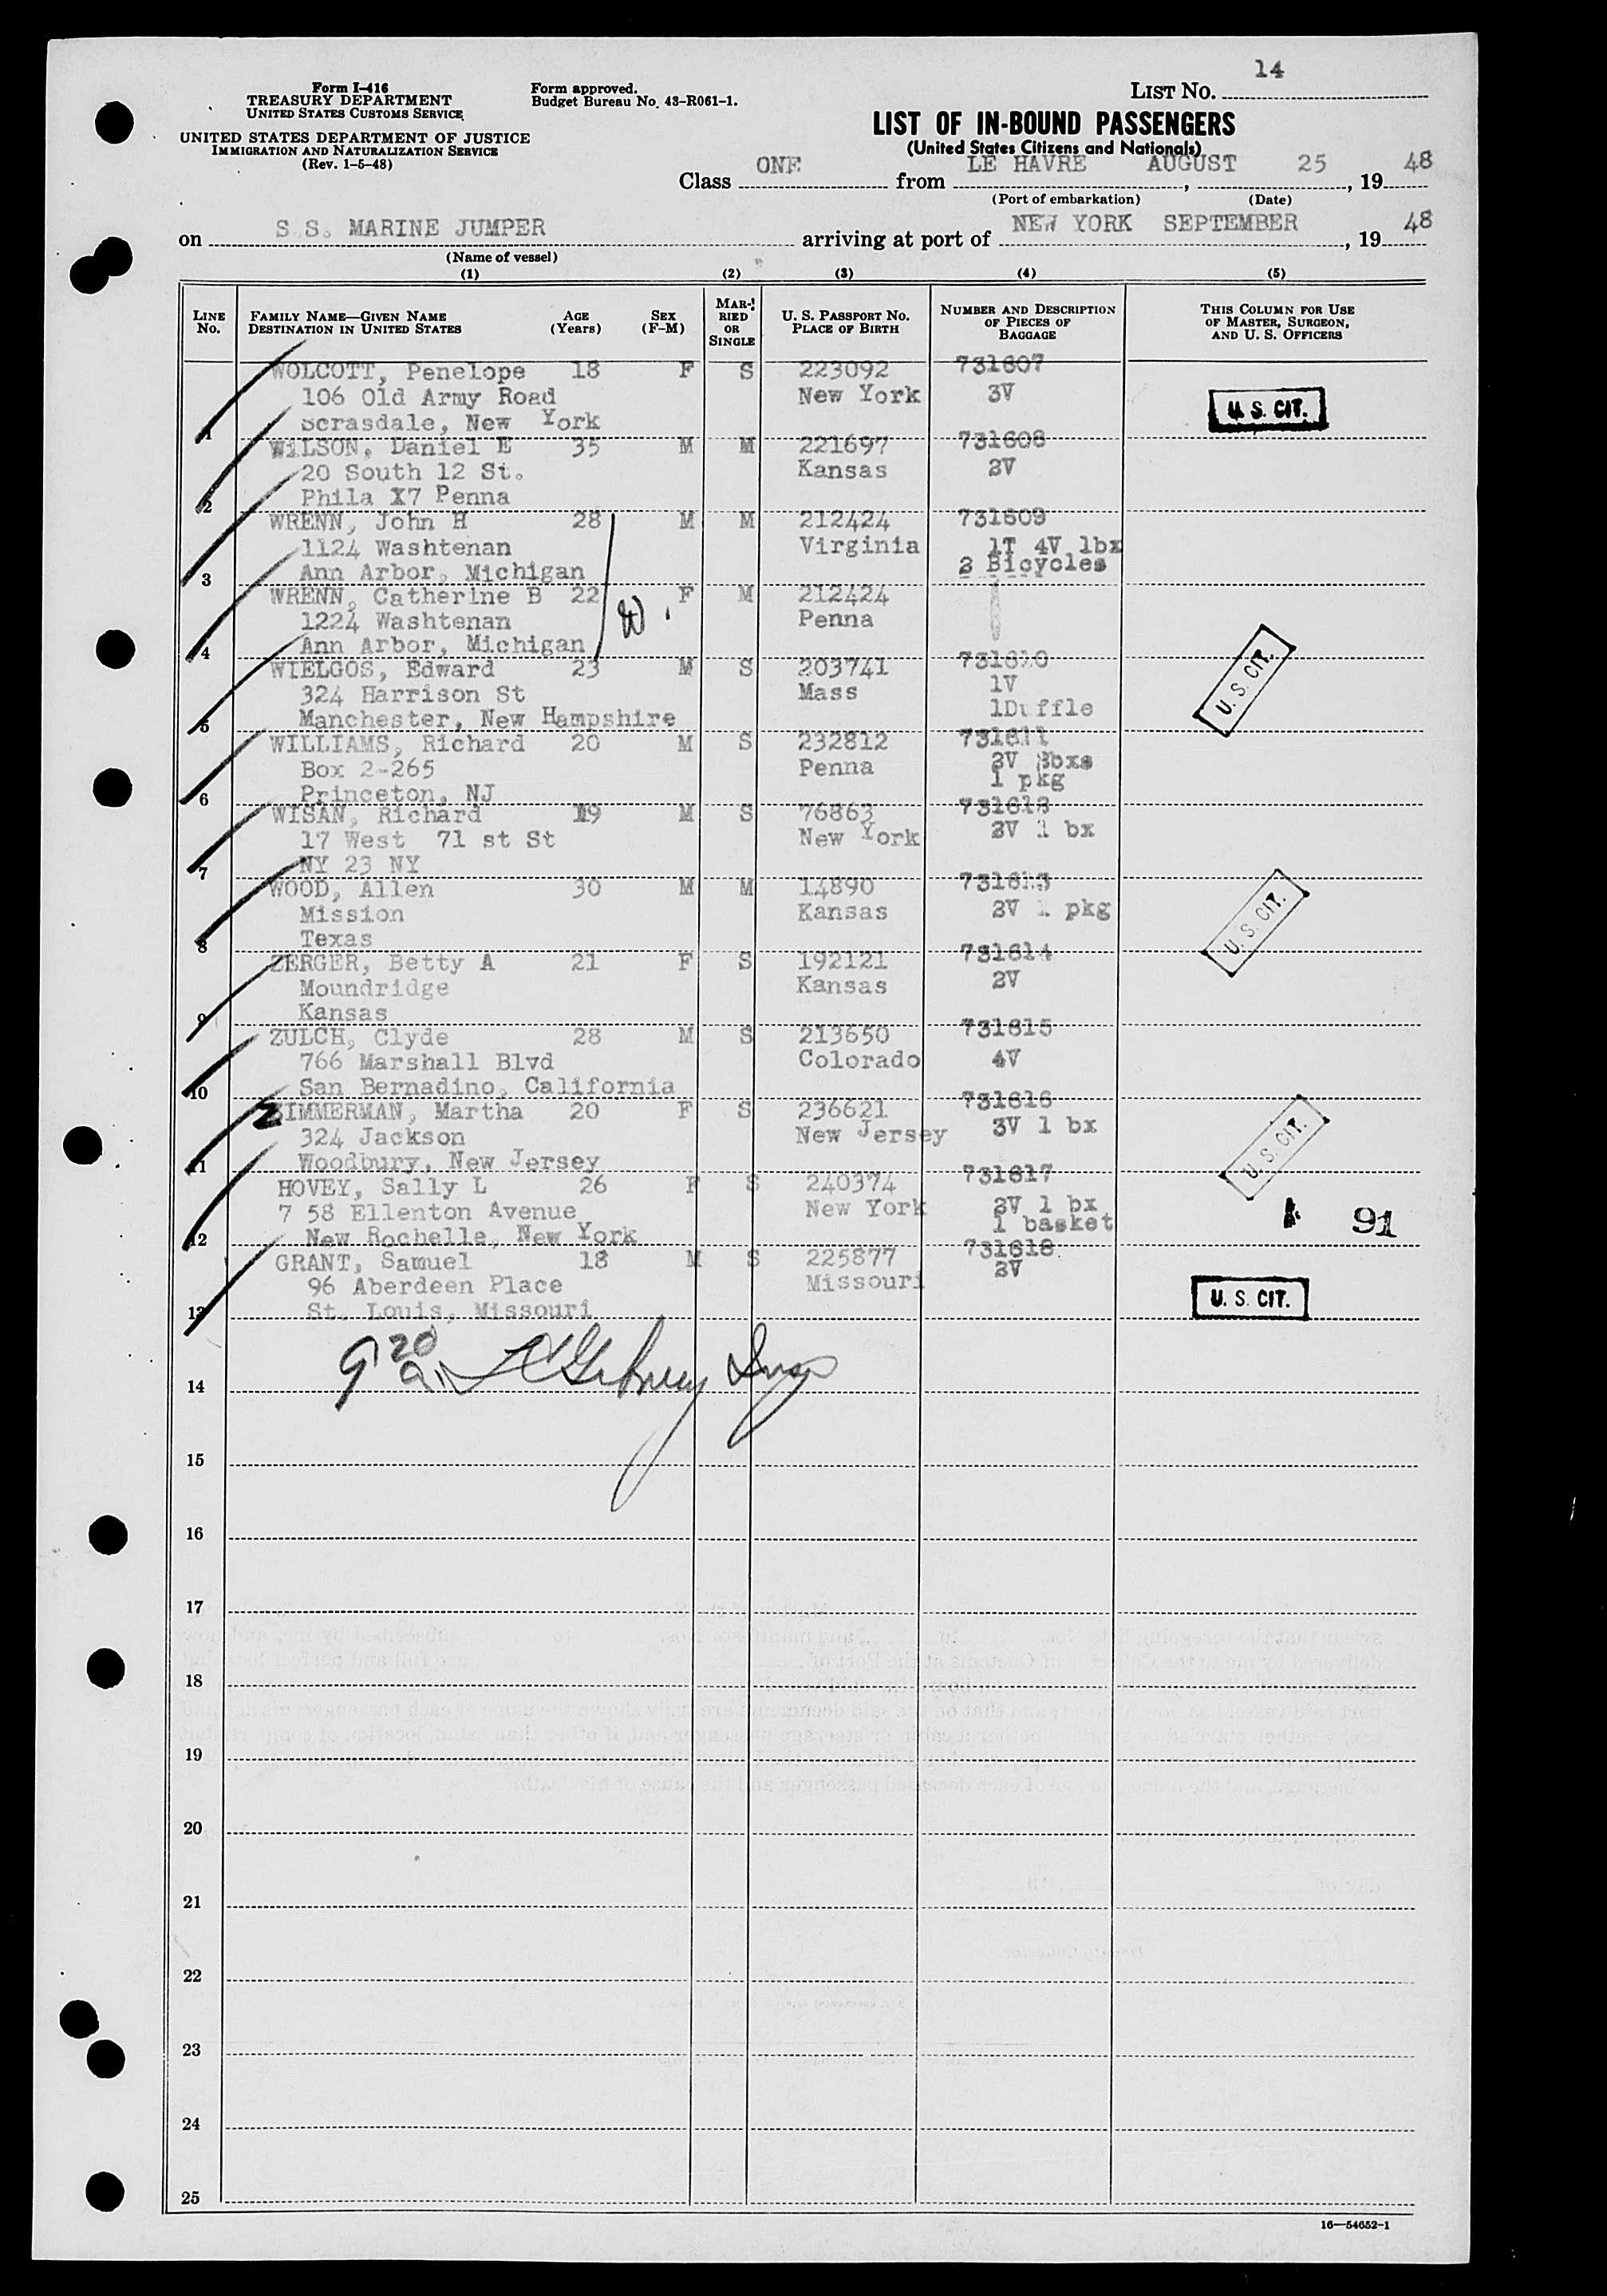 14
Form I-416
TREASURY DEPARTMENT
UNITED STATES CUSTOMS SERVICE
Form approved.
Budget Bureau No. 43-R061-1.
LIST NO.
UNITED STATES DEPARTMENT OF JUSTICE
IMMIGRATION AND NATURALIZATION SERVICE
(Rev. 1-5-48)
LIST OF IN-BOUND PASSENGERS
(United States Citizens and Nationals)
Class ONE from LE HAVRE, AUGUST 25, 19 48
(Port of embarkation) (Date)
on S.S. MARINE JUMPER arriving at port of NEW YORK SEPTEMBER, 19 48
(Name of vessel)
(1) (2) (3) (4) (5)
LINE No. FAMILY NAME—GIVEN NAME DESTINATION IN UNITED STATES AGE (Years) SEX (F-M) MARRIED OR SINGLE U. S. PASSPORT NO. PLACE OF BIRTH NUMBER AND DESCRIPTION OF PIECES OF BAGGAGE THIS COLUMN FOR USE OF MASTER, SURGEON, AND U. S. OFFICERS
WOLCOTT, Penelope 18 F S 223092 731607
106 Old Army Road New York 3V
1 Scrasdale, New York
U. S. CIT.
WILSON, Daniel E 35 M M 221697 731608
20 South 12 St. Kansas 2V
2 Phila X7 Penna
WRENN, John H 28 M M 212424 731609
1124 Washtenan Virginia 1T 4V 1bx
3 Ann Arbor, Michigan 2 Bicycles
WRENN, Catherine B 22 F M 212424
1224 Washtenan Penna
4 Ann Arbor, Michigan
WIELGOS, Edward 23 M S 203741 731610
324 Harrison St Mass 1V
5 Manchester, New Hampshire 1Duffle
U. S. CIT.
WILLIAMS, Richard 20 M S 232812 731611
Box 2-265 Penna 2V 3bxs
6 Princeton, NJ 1 pkg
WISAN, Richard 19 M S 76863 731612
17 West 71 st St New York 2V 1 bx
7 NY 23 NY
WOOD, Allen 30 M M 14890 731613
Mission Kansas 2V 1 pkg
8 Texas
U. S. CIT.
ZERGER, Betty A 21 F S 192121 731614
Moundridge Kansas 2V
9 Kansas
ZULCH, Clyde 28 M S 213650 731615
766 Marshall Blvd Colorado 4V
10 San Bernadino, California
ZIMMERMAN, Martha 20 F S 236621 731616
324 Jackson New Jersey 3V 1 bx
11 Woodbury, New Jersey
U. S. CIT.
HOVEY, Sally L 26 F S 240374 731617
7 58 Ellenton Avenue New York 2V 1 bx
12 New Rochelle, New York 1 basket
91
GRANT, Samuel 18 M S 225877 731618
96 Aberdeen Place Missouri 2V
13 St. Louis, Missouri
U. S. CIT.
9 20 a.
14
15
16
17
18
19
20
21
22
23
24
25
16—54652-1